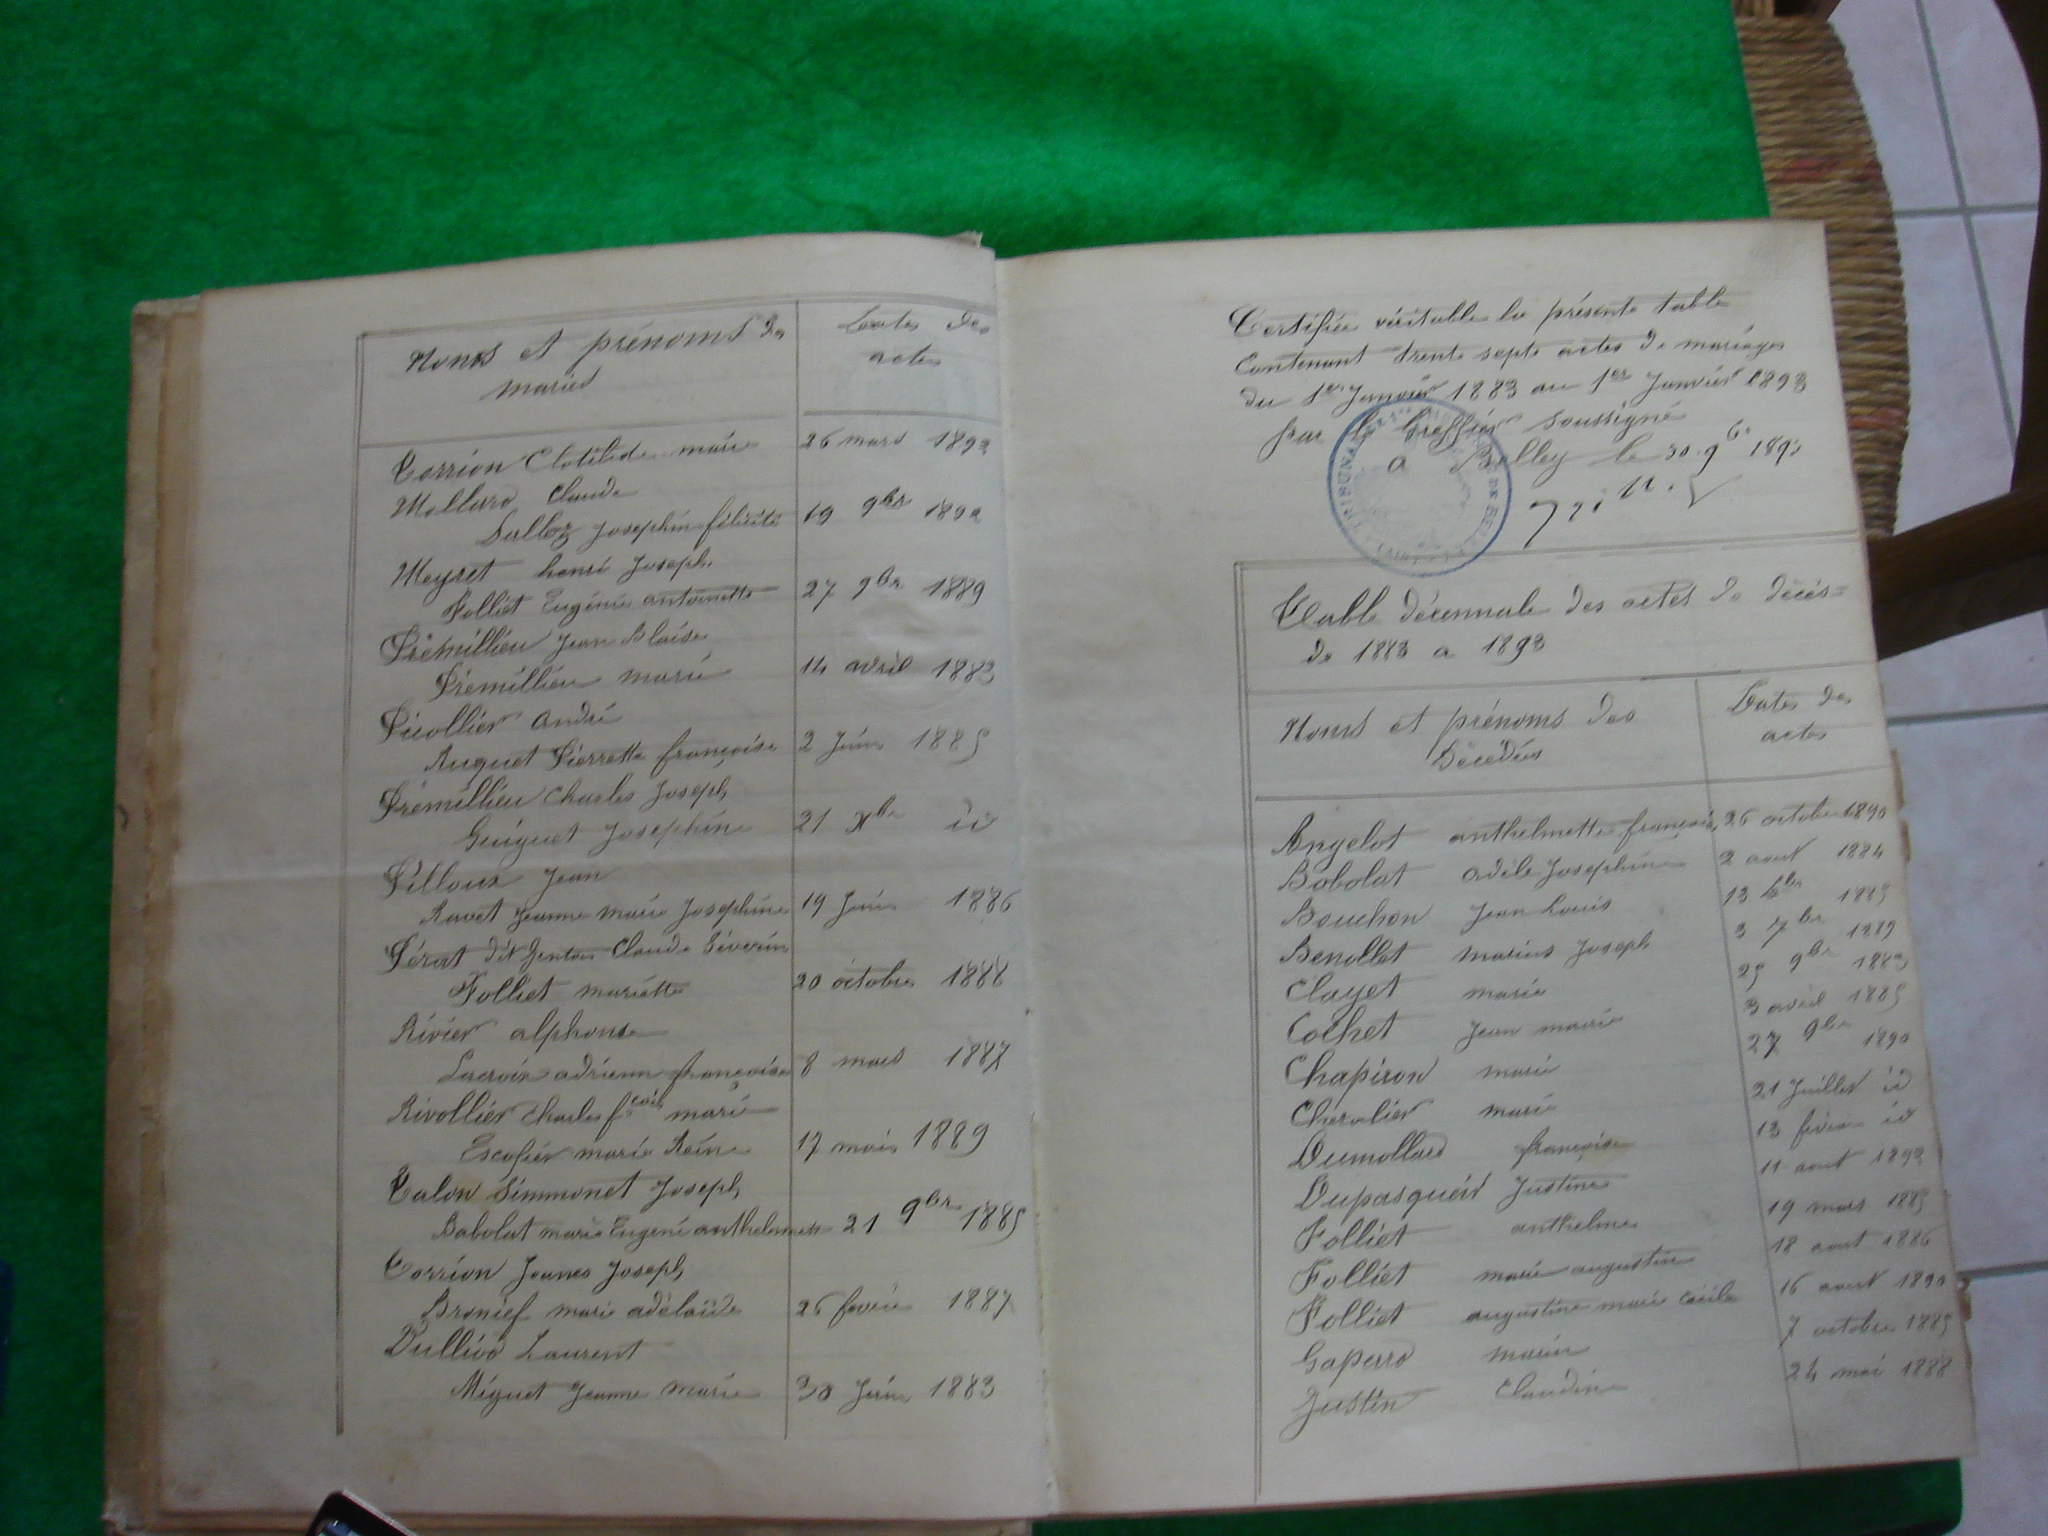 Noms et prénoms des
mariés
Dates des
actes
Corrion Clotilde marie 26 mars 1892
Mollard Claude
Dalloz Joséphin félicité 19 9bre 1892
Meyret henri Joseph
Folliet Eugénie antoinette 27 9bre 1889
Prémillieu Jean Blaise
Prémillieu marie 14 avril 1883
Picollier andré
Auguet Pierrette françoise 2 Juin 1885
Prémillieu Charles Joseph
Guiguet Joséphine 21 Xbre id
Pilloux Jean
Ravet Jeanne marie Joséphine 19 Juin 1886
Pérat dit Claude Séverin
Folliet mariette 20 octobre 1888
Rivier alphonse
Lacroix adrienn françoise 8 mars 1887
Rivollier Charles fcois marie
Escofier marie Reine 17 1889
Talon Simmonet Joseph
Babolat marie Eugéni anthelmette 21 9bre 1885
Corrion Joseph
marie adélaïde 26 février 1887
Laurent
Miguet Jeanne marie 30 Juin 1883
Certifiée véritable la présente table
Contenant trente septs actes de mariages
du 1er Janvier 1883 au 1er Janvier 1893
par le Greffier soussigné
a Belley le 30 9bre 1893
TRIBUNAL DE BELLEY
Table décennale des actes de décès
de 1883 a 1893
Noms et prénoms des
Décédés
Dates des
actes
Angelot anthelmette françoise 26 octobre 1890
Babolat adèle Joséphine 2 aout 1884
Bouchon Jean Louis 1885
Benollet marius Joseph 3 7bre 1889
Clayet marie 25 9bre 1883
Cochet Jean marie 3 avril 1885
Chapiron marie 27 9bre 1890
Chevalier marie 21 Juillet id
Dumollard françoise 13 février id
Dupasquier Justine 11 aout 1892
Folliet anthelme 19 mars 1885
Folliet marie augustine 18 aout 1886
Folliet augustine marie Cécile 16 aout 1890
Gaperro marie 7 octobre 1885
Justin Claudine 24 mai 1888